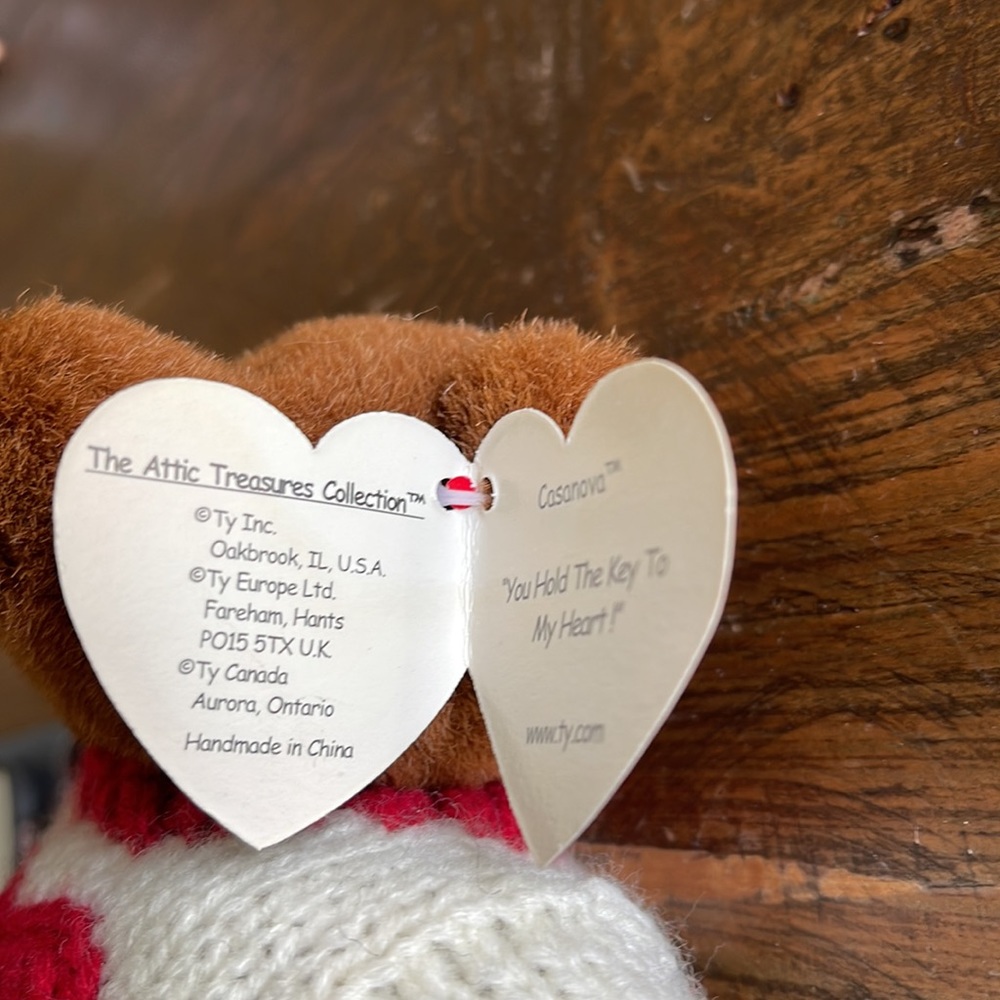 The Attic Treasures Collection™
©Ty Inc.
Oakbrook, IL, U.S.A.
©Ty Europe Ltd.
Fareham, Hants
PO15 5TX U.K.
©Ty Canada
Aurora, Ontario
Handmade in China
Casanova™
"You Hold The Key To
My Heart !"
www.ty.com